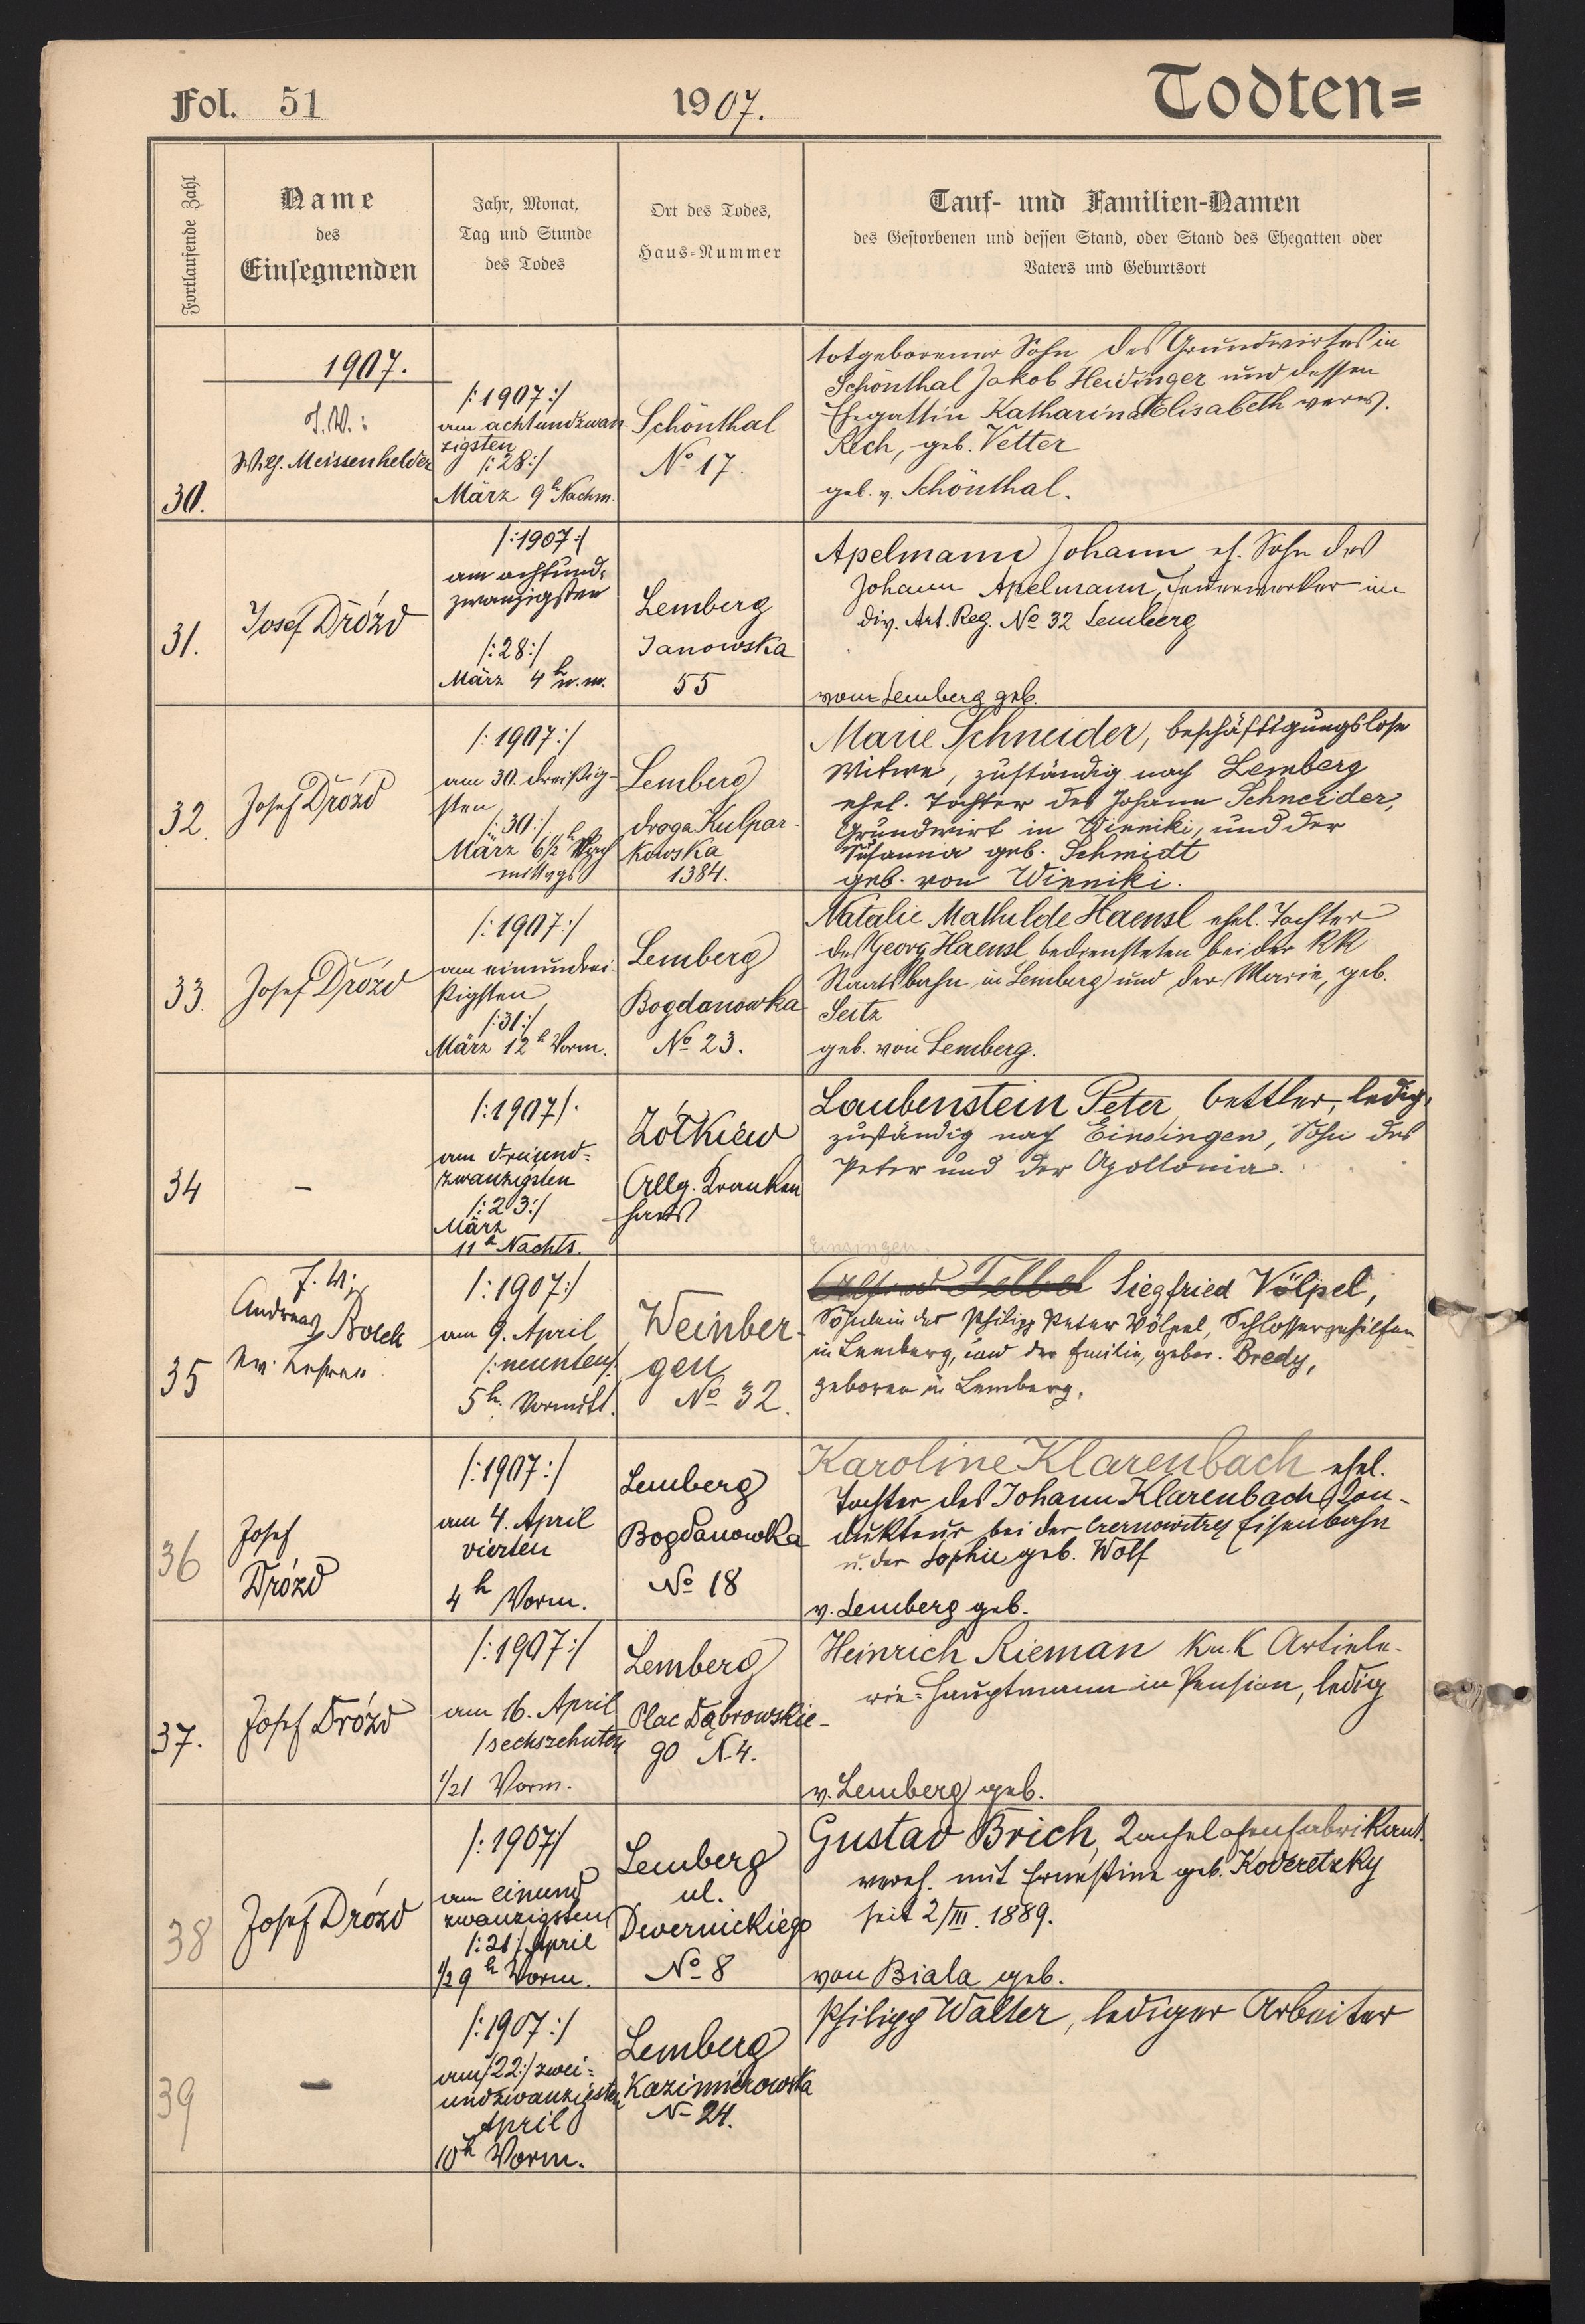 Fol. 51
1907.
Todten=
Fortlaufende Zahl
Name
des
Einsegnenden
Jahr, Monat,
Tag und Stunde
des Todes
Ort des Todes,
Haus-Nummer
Tauf- und Familien-Namen
des Gestorbenen und dessen Stand, oder Stand des Ehegatten oder
Vaters und Geburtsort
30.
1907.
I.V.:
Wilh. Meissenhelder
/:1907:/
am achtundzwan-
zigsten
/:28:/
März 9h Nachm.
Schönthal
No 17.
totgeborener Sohn des Grundwirtes in
Schönthal Jakob Heidinger und dessen
Ehegattin Katharina Elisabeth verw.
Rech, geb. Vetter
geb. v. Schönthal.
31.
Josef Drózd
/:1907:/
am achtund-
zwanzigsten
/:28:/
März 4h n. m.
Lemberg
Janowska
55
Apelmann Johann, eh. Sohn des
Johann Apelmann, Feuerwerker im
div. Art. Reg. No 32 Lemberg
von Lemberg geb.
32.
Josef Drózd
/:1907:/
am 30. dreißig-
sten
/:30:/
März 6½ h Nach
mittags
Lemberg
droga Kulpar-
kowska
1384.
Marie Schneider, beschäftigungslose
Witwe, zuständig nach Lemberg
ehel. Tochter des Johann Schneider,
Grundwirt in Winniki, und der
Susanna geb. Schmidt
geb. von Winniki.
33.
Josef Drózd
/:1907:/
am einundrei-
ßigsten
/:31:/
März 12h Vorm.
Lemberg
Bogdanowka
No 23.
Natalie Mathilde Haensl ehel. Tochter
des Georg Haensl bediensteten bei der KK
Staatsbahn in Lemberg und der Marie, geb.
Seitz
geb. von Lemberg.
34
–
/:1907/.
am dreiund=
zwanzigsten
/:23:/
März
11h Nachts.
Żółkiew
Allg. Kranken
haus
Laubenstein Peter, bettler, ledig,
zuständig nach Einsingen, Sohn des
Peter und der Apollonia.
Einsingen.
35
I. V.
Andreas Bolek
ev. Lehrer
/:1907:/
am 9. April
/:neunten/.
5h. Vormitt.
Weinber-
gen
No 32.
Siegfried Völpel,
Söhnlein des Philipp Peter Völpel, Schlossergehilfen
in Lemberg, und der Emilie, gebor. Bredy,
geboren in Lemberg.
36
Josef
Drózd
/:1907:/
am 4. April
vierten
4h Vorm.
Lemberg
Bogdanowka
No 18
Karoline Klarenbach ehel.
Tochter des Johann Klarenbach, Kon-
dukteur bei der Czernowitzer Eisenbahn
u. der Sophie geb. Wolf
v. Lemberg geb.
37.
Josef Drózd
/:1907:/
am 16. April
/sechszehnten
½1 Vorm.
Lemberg
Plac Dąbrowskie-
go N 4.
Heinrich Rieman K.u.K Artiele-
rie-Hauptmann in Pension, ledig
v. Lemberg geb.
38
Josef Drózd
/:1907/
am einund
zwanzigsten
/:21/. April
½9h Vorm.
Lemberg
ul.
Dwernickiego
No 8
Gustav Brich, Kachelofenfabrikant.
vereh. mit Ernestine geb. Koderetzky
seit 2/III. 1889.
von Biala geb.
39
–
/:1907:/
am/22:/ zwei=
undzwanzigsten
April
10h Vorm.
Lemberg
Kazimierowska
N 24.
Philipp Walter, lediger Arbeiter